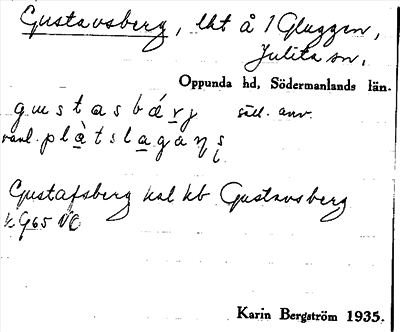 Gustavsberg, lht å 1 Gluggen,
Julita sn,
Oppunda hd, Södermanlands län.
gustasbärj säll. anv.
vanl. plàtslagaṇs
Gustafsberg hal kb Gustavsberg
Karin Bergström 1935.